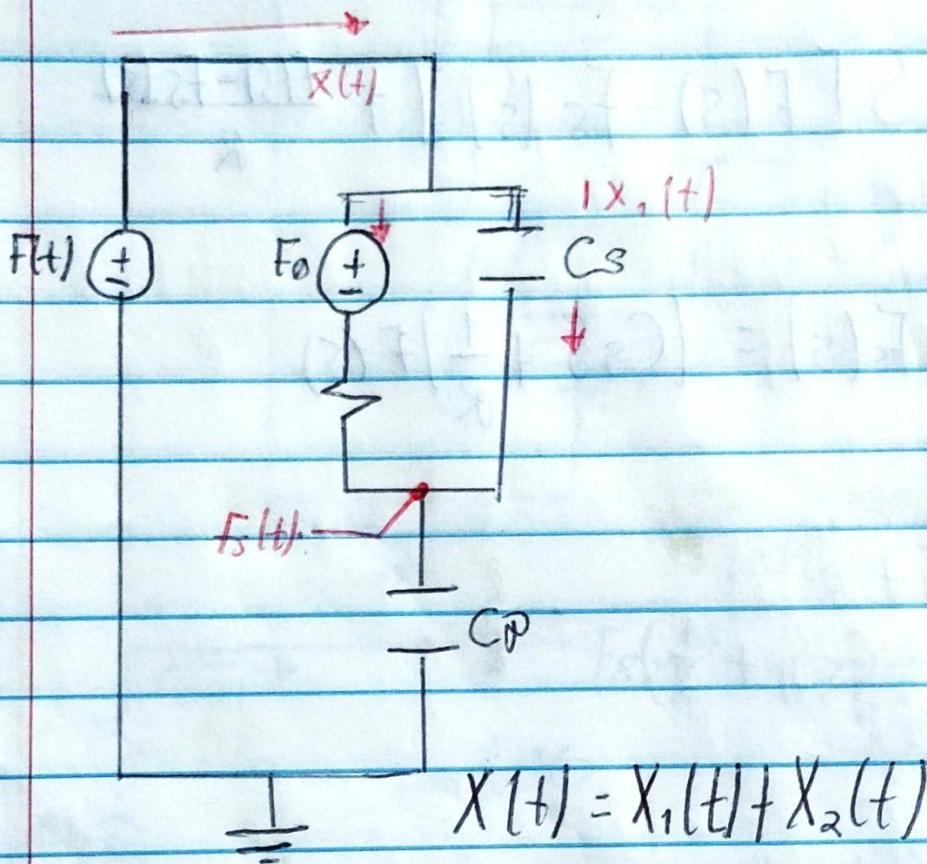 X(t)
1X₁(t)
F(t)
+
-
F0
+
-
Cs
Fs(t).
Cp
X(t) = X₁(t) + X₂(t)